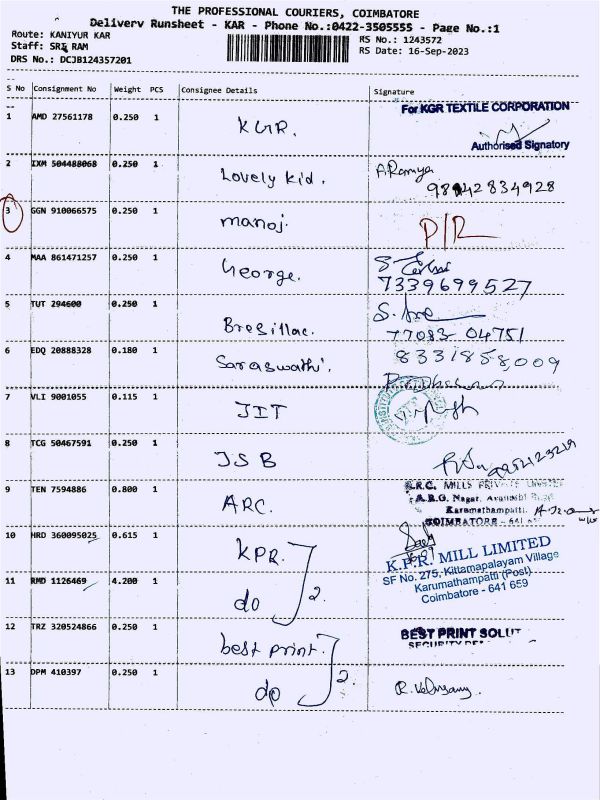 THE PROFESSIONAL COURIERS, COIMBATORE
Delivery Runsheet - KAR - Phone No.:0422-3505555 - Page No.:1
Route: KANIYUR KAR
RS No.: 1243572
Staff: SRI RAM
RS Date: 16-Sep-2023
DRS No.: DCJB124357201
S No Consignment No Weight PCS Consignee Details Signature
1 AMD 27561178 0.250 1 KGR. For KGR TEXTILE CORPORATION
Authorised Signatory
2 IXM 504488068 0.250 1 Lovely kid. A.Ramya
9842834928
3 GGN 910066575 0.250 1 manoj. P/R
4 MAA 861471257 0.250 1 George.
7339699527
5 TUT 294600 0.250 1 Bresillac.
77083 04751
6 EDQ 20888328 0.180 1 Saraswathi. 8331858009
7 VLI 9001055 0.115 1 JIT
8 TCG 50467591 0.250 1 JSB
9 TEN 7594886 0.800 1 ARC. MILLS PRIVATE
Nagar, Avanashi
Karamathampatti.
COIMBATORE - 641
10 HRD 360095025 0.615 1 KPR. K.P.R. MILL LIMITED
SF No. 275, Kittampalayam Village
11 RMD 1126469 4.200 1 do 2. Karumathampatti (Post)
Coimbatore - 641 659
12 TRZ 320524866 0.250 1 best print. BEST PRINT SOLUT
13 DPM 410397 0.250 1 do 2. R.